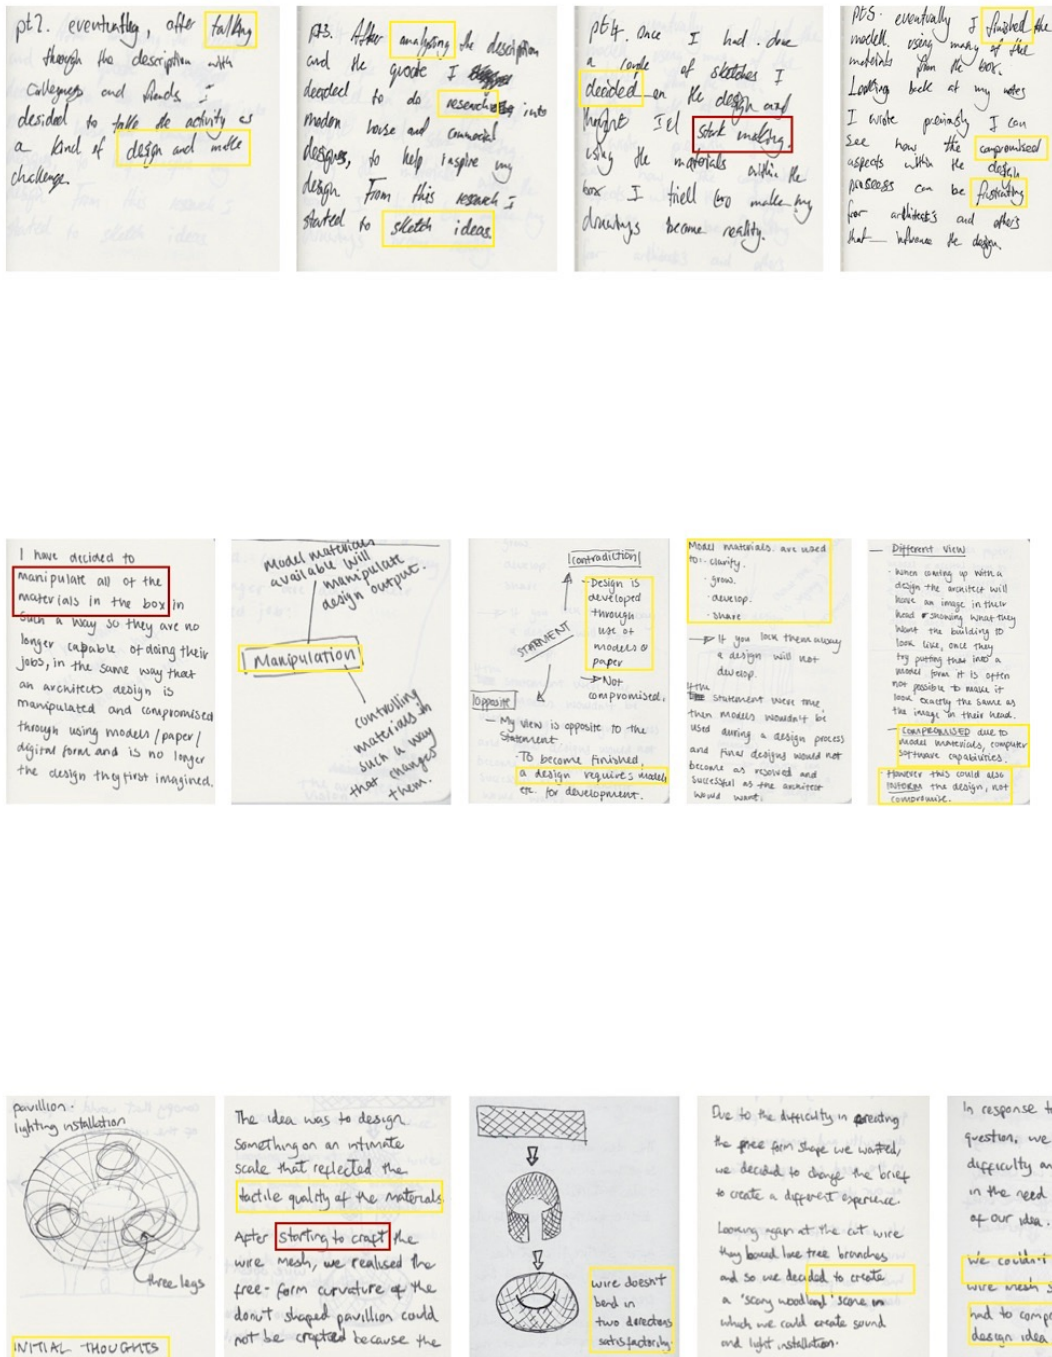 pt2. eventually, after talking
through the description with
collegues and friends I
desided to take the activity as
a kind of design and make
challenge.
pt3. After analysing the description
and the quote I
decided to do research into
modern house and commercial
designs, to help inspire my
design. From this research I
started to sketch ideas
pt4. Once I had done
a couple of sketches I
decided on the design and
thought I'd start making.
using the materials within the
box I triell to make my
drawings become reality.
pt5. eventually I finished the
modell. using many of the
materials from the box.
Looking back at my notes
I wrote previously I can
see how the compromised
aspects within the design
prosess can be frustrating
for architects and others
that influence the design.
I have decided to
manipulate all of the
materials in the box in
such a way so they are no
longer capable of doing their
jobs, in the same way that
an architects design is
manipulated and compromised
through using models/paper/
digital form and is no longer
the design they first imagined.
Model materials
available will
manipulate
design output.
Manipulation
controlling
materials in
such a way
that changes
them.
Contradiction
Design is
developed
through
use of
models &
paper
Not
compromised.
STATEMENT
opposite
- My view is opposite to the
statement
- To become finished,
a design requires models
etc. for development.
Model materials are used
to: - clarify.
- grow.
- develop.
- share
If you lock them away
a design will not
develop.
If the statement were true,
then models wouldn't be
used during a design process
and final designs would not
become as resolved and
successful as the architect
would want.
- Different view
- When coming up with a
design the architect will
have an image in their
head showing what they
want the building to
look like, once they
try putting that into a
model form it is often
not possible to make it
look exactly the same as
the image in their head.
- COMPROMISED due to
model materials, computer
software capabilities.
- However this could also
INFORM the design, not
compromise.
pavillion.
lighting installation
three legs
INITIAL THOUGHTS
The idea was to design
something on an intimate
scale that reflected the
tactile quality of the materials
After starting to craft the
wire mesh, we realised the
free-form curvature of the
donut shaped pavillion could
not be crafted because the
wire doesn't
bend in
two directions
satisfactorily.
Due to the difficulty in creating
the free form shape we wanted,
we decided to change the brief
to create a different experience.
Looking again at the cut wire
they looked like tree branches
and so we decided to create
a 'scary woodland' scene in
which we could create sound
and light installation.
In response t
question, we
difficulty an
in the need
of our idea.
We couldn't
wire mesh s
had to comp
design idea